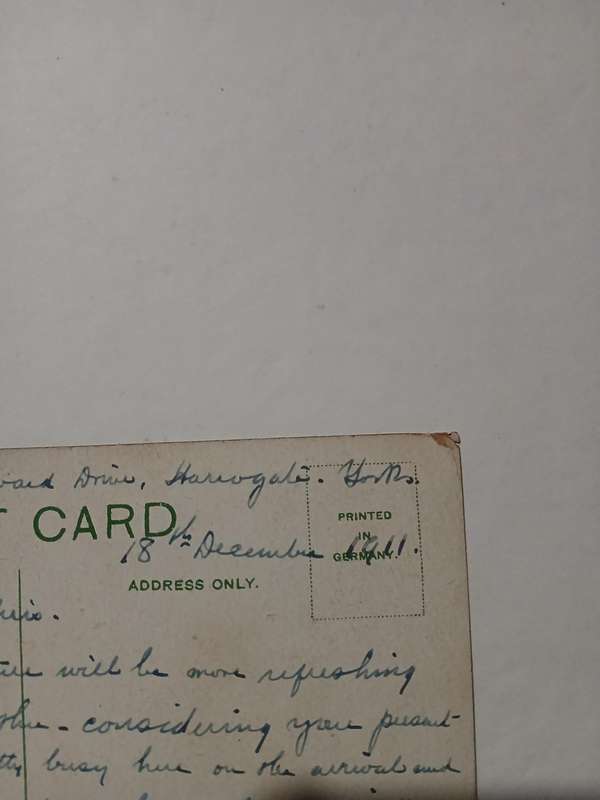 Drive, Harrogate. Yorks.
T CARD
18th December 1911.
PRINTED
IN
GERMANY.
ADDRESS ONLY.
will be more refreshing
considering your present
busy here on the arrival and